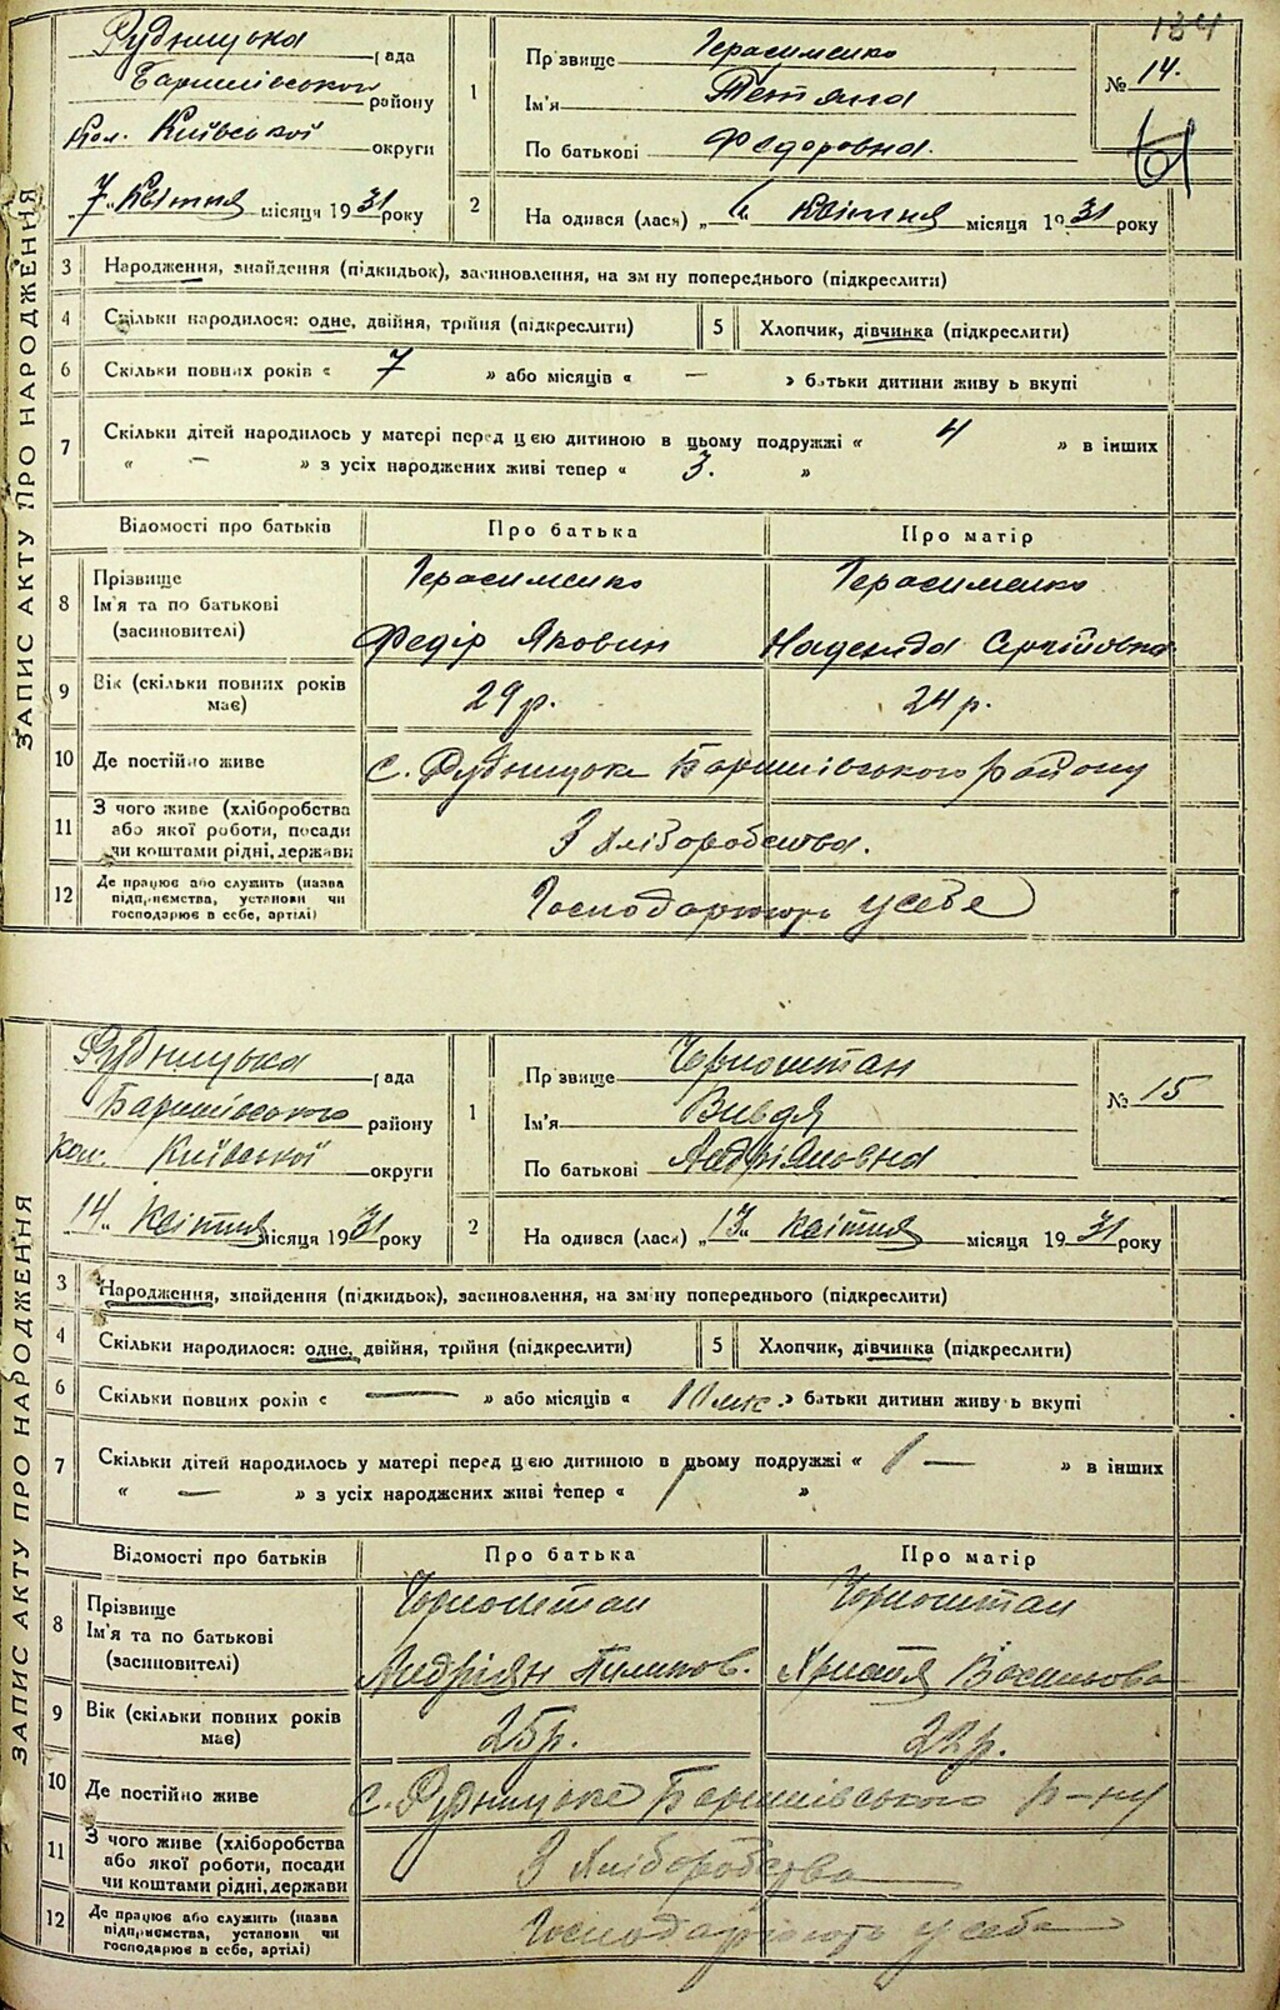 184
ЗАПИС АКТУ ПРО НАРОДЖЕННЯ
Рудницька рада
Баришівського району
Київської округи
„7“ Квітня місяця 1931 року
1
Прізвище Герасименко
Ім'я Тетяна
По батькові Федоровна.
№ 14.
2
На одився (лася) Квітня місяця 1931 року
3 Народження, знайдення (підкидьок), засиновлення, на зміну попереднього (підкреслити)
4 Скільки народилося: одне, двійня, трійня (підкреслити) 5 Хлопчик, дівчинка (підкреслити)
6 Скільки повних років « 7 » або місяців « — » батьки дитини живу ь вкупі
7 Скільки дітей народилось у матері перед цією дитиною в цьому подружжі « 4 » в інших
« — » з усіх народжених живі тепер « 3. »
Відомості про батьків Про батька Про матір
8 Прізвище Герасименко Герасименко
Ім'я та по батькові
(засиновителі) Федір Якович Надежда Сергійовна
9 Вік (скільки повних років має) 29 р. 24 р.
10 Де постійно живе с. Рудницьке Баришівського району
11 З чого живе (хліборобства
або якої роботи, посади
чи коштами рідні, держави З хліборобства.
12 Де працює або служить (назва
підприємства, установи чи
господарює в себе, артілі) Господарюють у себе
ЗАПИС АКТУ ПРО НАРОДЖЕННЯ
Рудницька рада
Баришівського району
Київської округи
14 „ Квітня місяця 1931 року
1
Прізвище Чорноштан
Ім'я Вивдя
По батькові Андріяновна
№ 15
2
На одився (лася) „13“ Квітня місяця 1931 року
3 Народження, знайдення (підкидьок), засиновлення, на зміну попереднього (підкреслити)
4 Скільки народилося: одне, двійня, трійня (підкреслити) 5 Хлопчик, дівчинка (підкреслити)
6 Скільки повних років « — » або місяців « 10 міс. » батьки дитини живу ь вкупі
7 Скільки дітей народилось у матері перед цією дитиною в цьому подружжі « 1 — » в інших
« — » з усіх народжених живі тепер « 1 »
Відомості про батьків Про батька Про матір
8 Прізвище Чорноштан Чорноштан
Ім'я та по батькові
(засиновителі) Андріян Пилипов. Христя Васильовна
9 Вік (скільки повних років має) 25 р. 22 р.
10 Де постійно живе с. Рудницьке Баришівського р-ну
11 З чого живе (хліборобства
або якої роботи, посади
чи коштами рідні, держави З хліборобства
12 Де працює або служить (назва
підприємства, установи чи
господарює в себе, артілі) Господарюють у себе